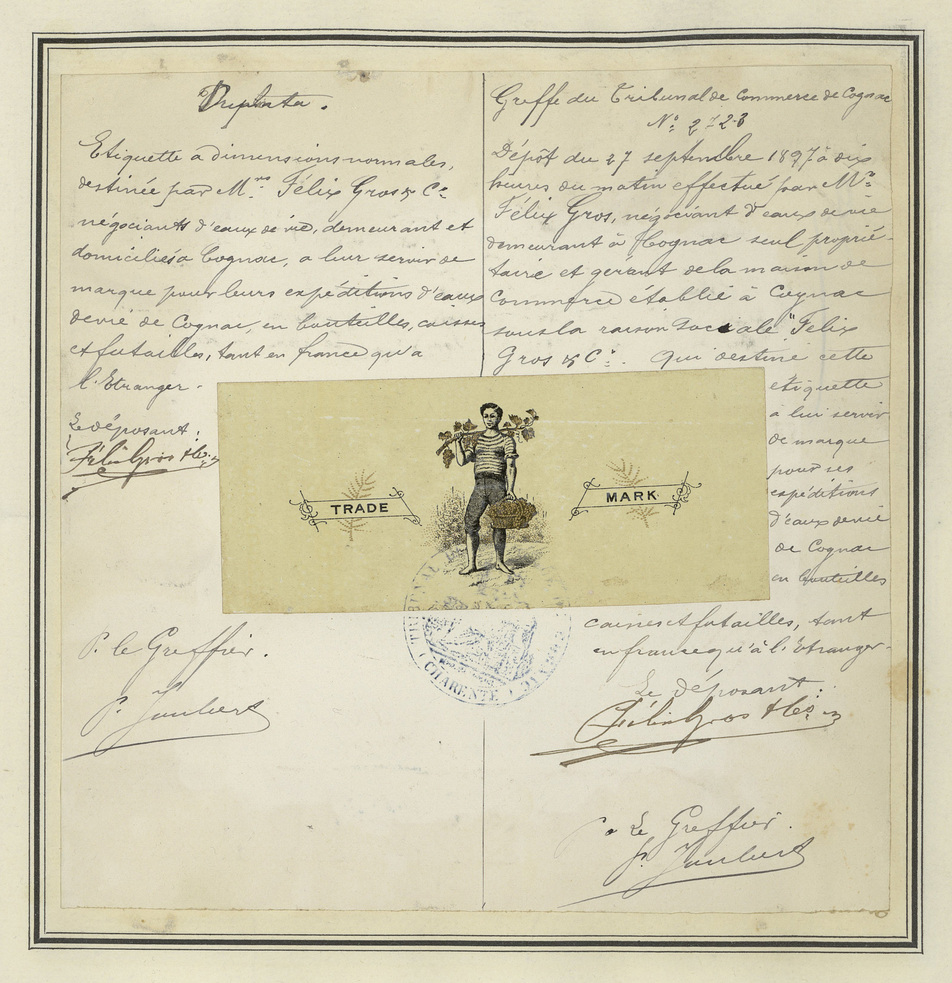 Duplicata.
Etiquette a dimensions normales,
destinée par M.rs Félix Gros & Cie
négociants d'eaux de vie, demeurant et
domiciliés à Cognac, a leur servir de
marque pour leurs expéditions d'eaux
de vie de Cognac, en bouteilles, caisses
et futailles, tant en france qu'a
l'Etranger.
Le déposant:
Félix Gros & Co.
P. le Greffier.
P. Joubert
Greffe du Tribunal de Commerce de Cognac
No. 2723
Dépôt du 27 septembre 1897 à dix
heures du matin effectué par Mr.
Félix Gros, négociant d'eaux de vie
demeurant à Cognac seul proprié-
taire et gérant de la maison de
Commerce établie à Cognac
sous la raison Sociale "Félix
Gros & Cie. Qui destine cette
etiquette
a lui servir
de marque
pour ses
expéditions
d'eaux de vie
de Cognac
en bouteilles
caisses et futailles, tant
en france qu'à l'étranger.
Le déposant:
Félix Gros & Co.
P. Le Greffier.
P. Joubert
TRADE
MARK
TRIBUNAL
CHARENTE